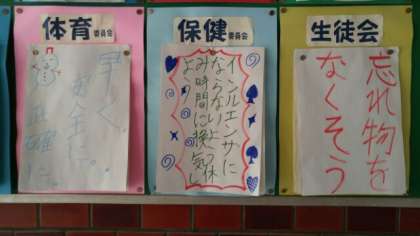 体育委員会
早く、
安全に、
正確に。
保健委員会
インルエンサに
ならないよう休
み時間に換気し
よう
生徒会
忘れ物を
なくそう